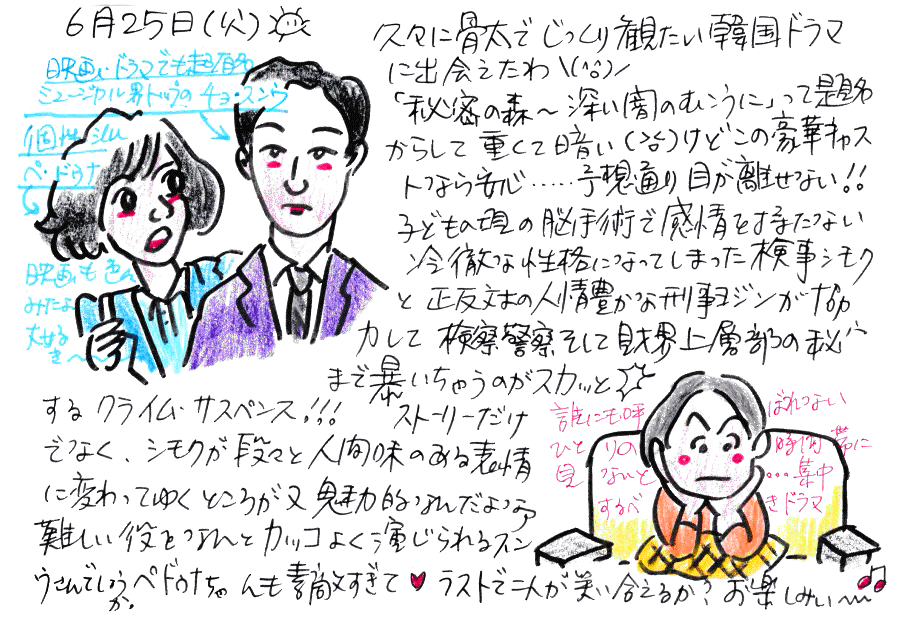 6月25日(火)
久々に骨太でじっくり観たい韓国ドラマ
に出会えたわ\(^o^)/
「秘密の森〜深い闇のむこうに」って題名
からして重くて暗い(>o<)けどこの豪華キャス
トなら安心……予想通り目が離せない!!
子どもの頃の脳手術で感情をもたない
冷徹な性格になってしまった検事シモク
と正反対の人情豊かな刑事ヨジンが協
力して検察警察そして財界上層部の秘密
まで暴いちゃうのがスカッと
するクライム・サスペンス!!! ストーリーだけ
でなく、シモクが段々と人間味のある表情
に変わってゆくところが又魅力的なんだよなア
難しい役をなんとカッコよく演じられるスン
ウさんでしょうか。ペドゥナちゃんも素敵すぎて♥ラストで二人が笑い合えるか?お楽しみぃ〜♫
映画・ドラマでも超有名
ミュージカル界トップの チョ・スンウ
個性派
ペ・ドゥナ
映画も色々
みたよ
大好き〜
誰にも呼ばれない
ひとりの時間帯に
見ないと…集中
するべきドラマ